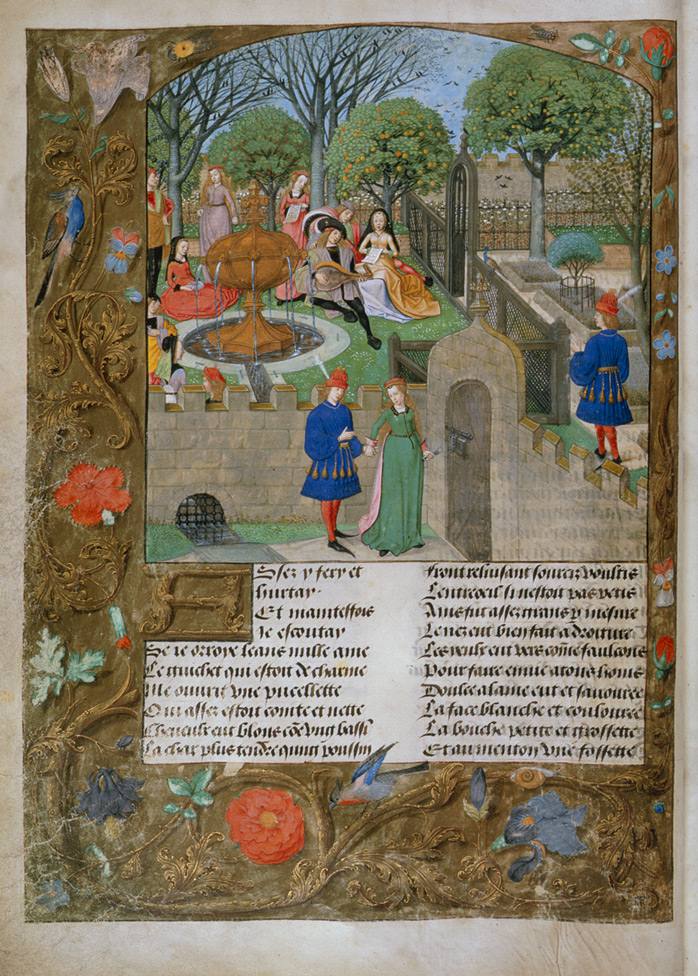 Assez y fery et
hurtay
Et maintesfois
Ie escoutay
Se ie orroye leans nulle ame
Le guichet qui estoit de charme
Me ouurit vne pucellette
Qui assez estoit cointe et nette
Cheueulx eut blons cõe vng bassĩ
La char plus tendre qung poussin
Front reluisant sourcilz voultis
Lentreoeil si nestoit pas petis
Ains fut assez grans p mesure
Le nez eut bien fait a droiture
Les yeulx eut vers cõme faulcons
Pour faire enuie a tous homs
Doulce alaine eut et sauouree
La face blanche et coulouree
La bouche petite et grossette
Et au menton vne fossette